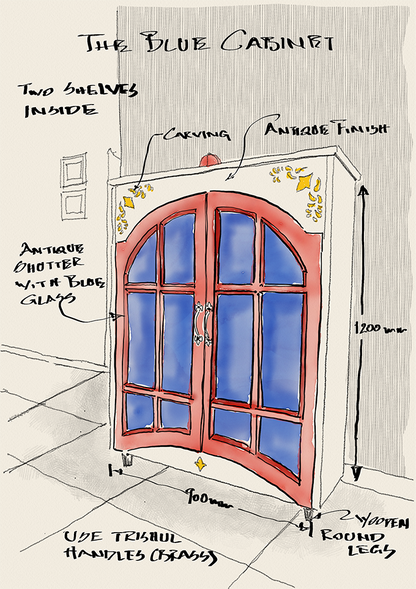 THE BLUE CABINET
TWO SHELVES
INSIDE
CARVING
ANTIQUE FINISH
ANTIQUE
SHUTTER
WITH BLUE
GLASS
1200 mm
900mm
WOODEN
ROUND
LEGS
USE TRISHUL
HANDLES (BRASS)